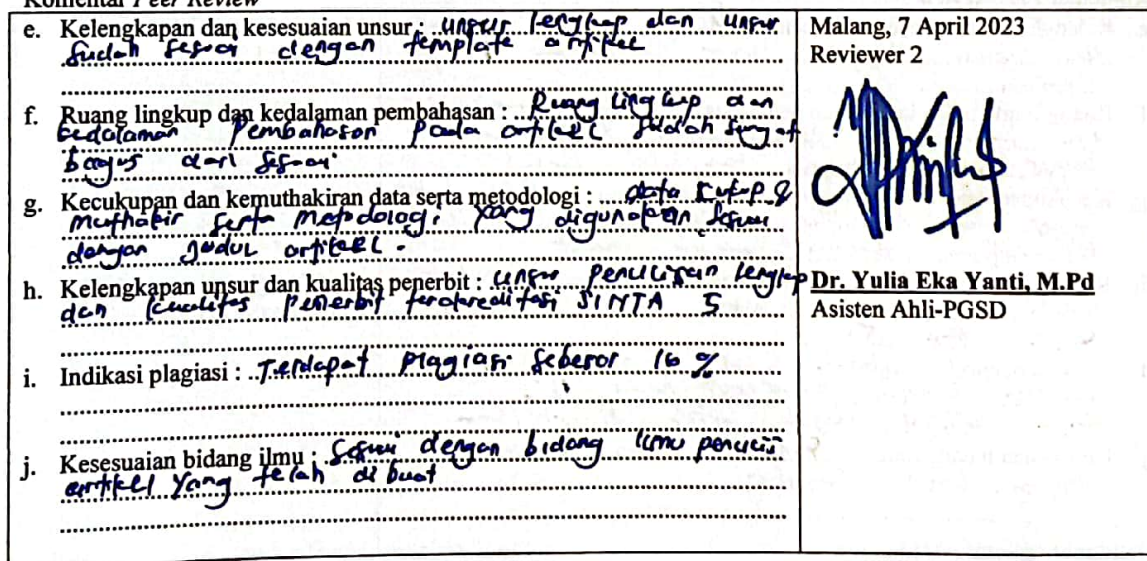 Komentar Peer Review
e. Kelengkapan dan kesesuaian unsur : unsur lengkap dan unsur
sudah sesuai dengan template artikel
f. Ruang lingkup dan kedalaman pembahasan : Ruang lingkup dan
kedalaman pembahasan pada artikel sudah sangat
bagus dari sesuai
g. Kecukupan dan kemuthakiran data serta metodologi : data cukup &
muthakir serta metodologi yang digunakan sesuai
dengan judul artikel.
h. Kelengkapan unsur dan kualitas penerbit : unsur penulisan lengkap
dan kualitas penerbit terakreditasi SINTA 5
i. Indikasi plagiasi : Terdapat plagiasi sebesar 16 %
j. Kesesuaian bidang ilmu : sesuai dengan bidang ilmu penulis
artikel yang telah di buat
Malang, 7 April 2023
Reviewer 2
Dr. Yulia Eka Yanti, M.Pd
Asisten Ahli-PGSD